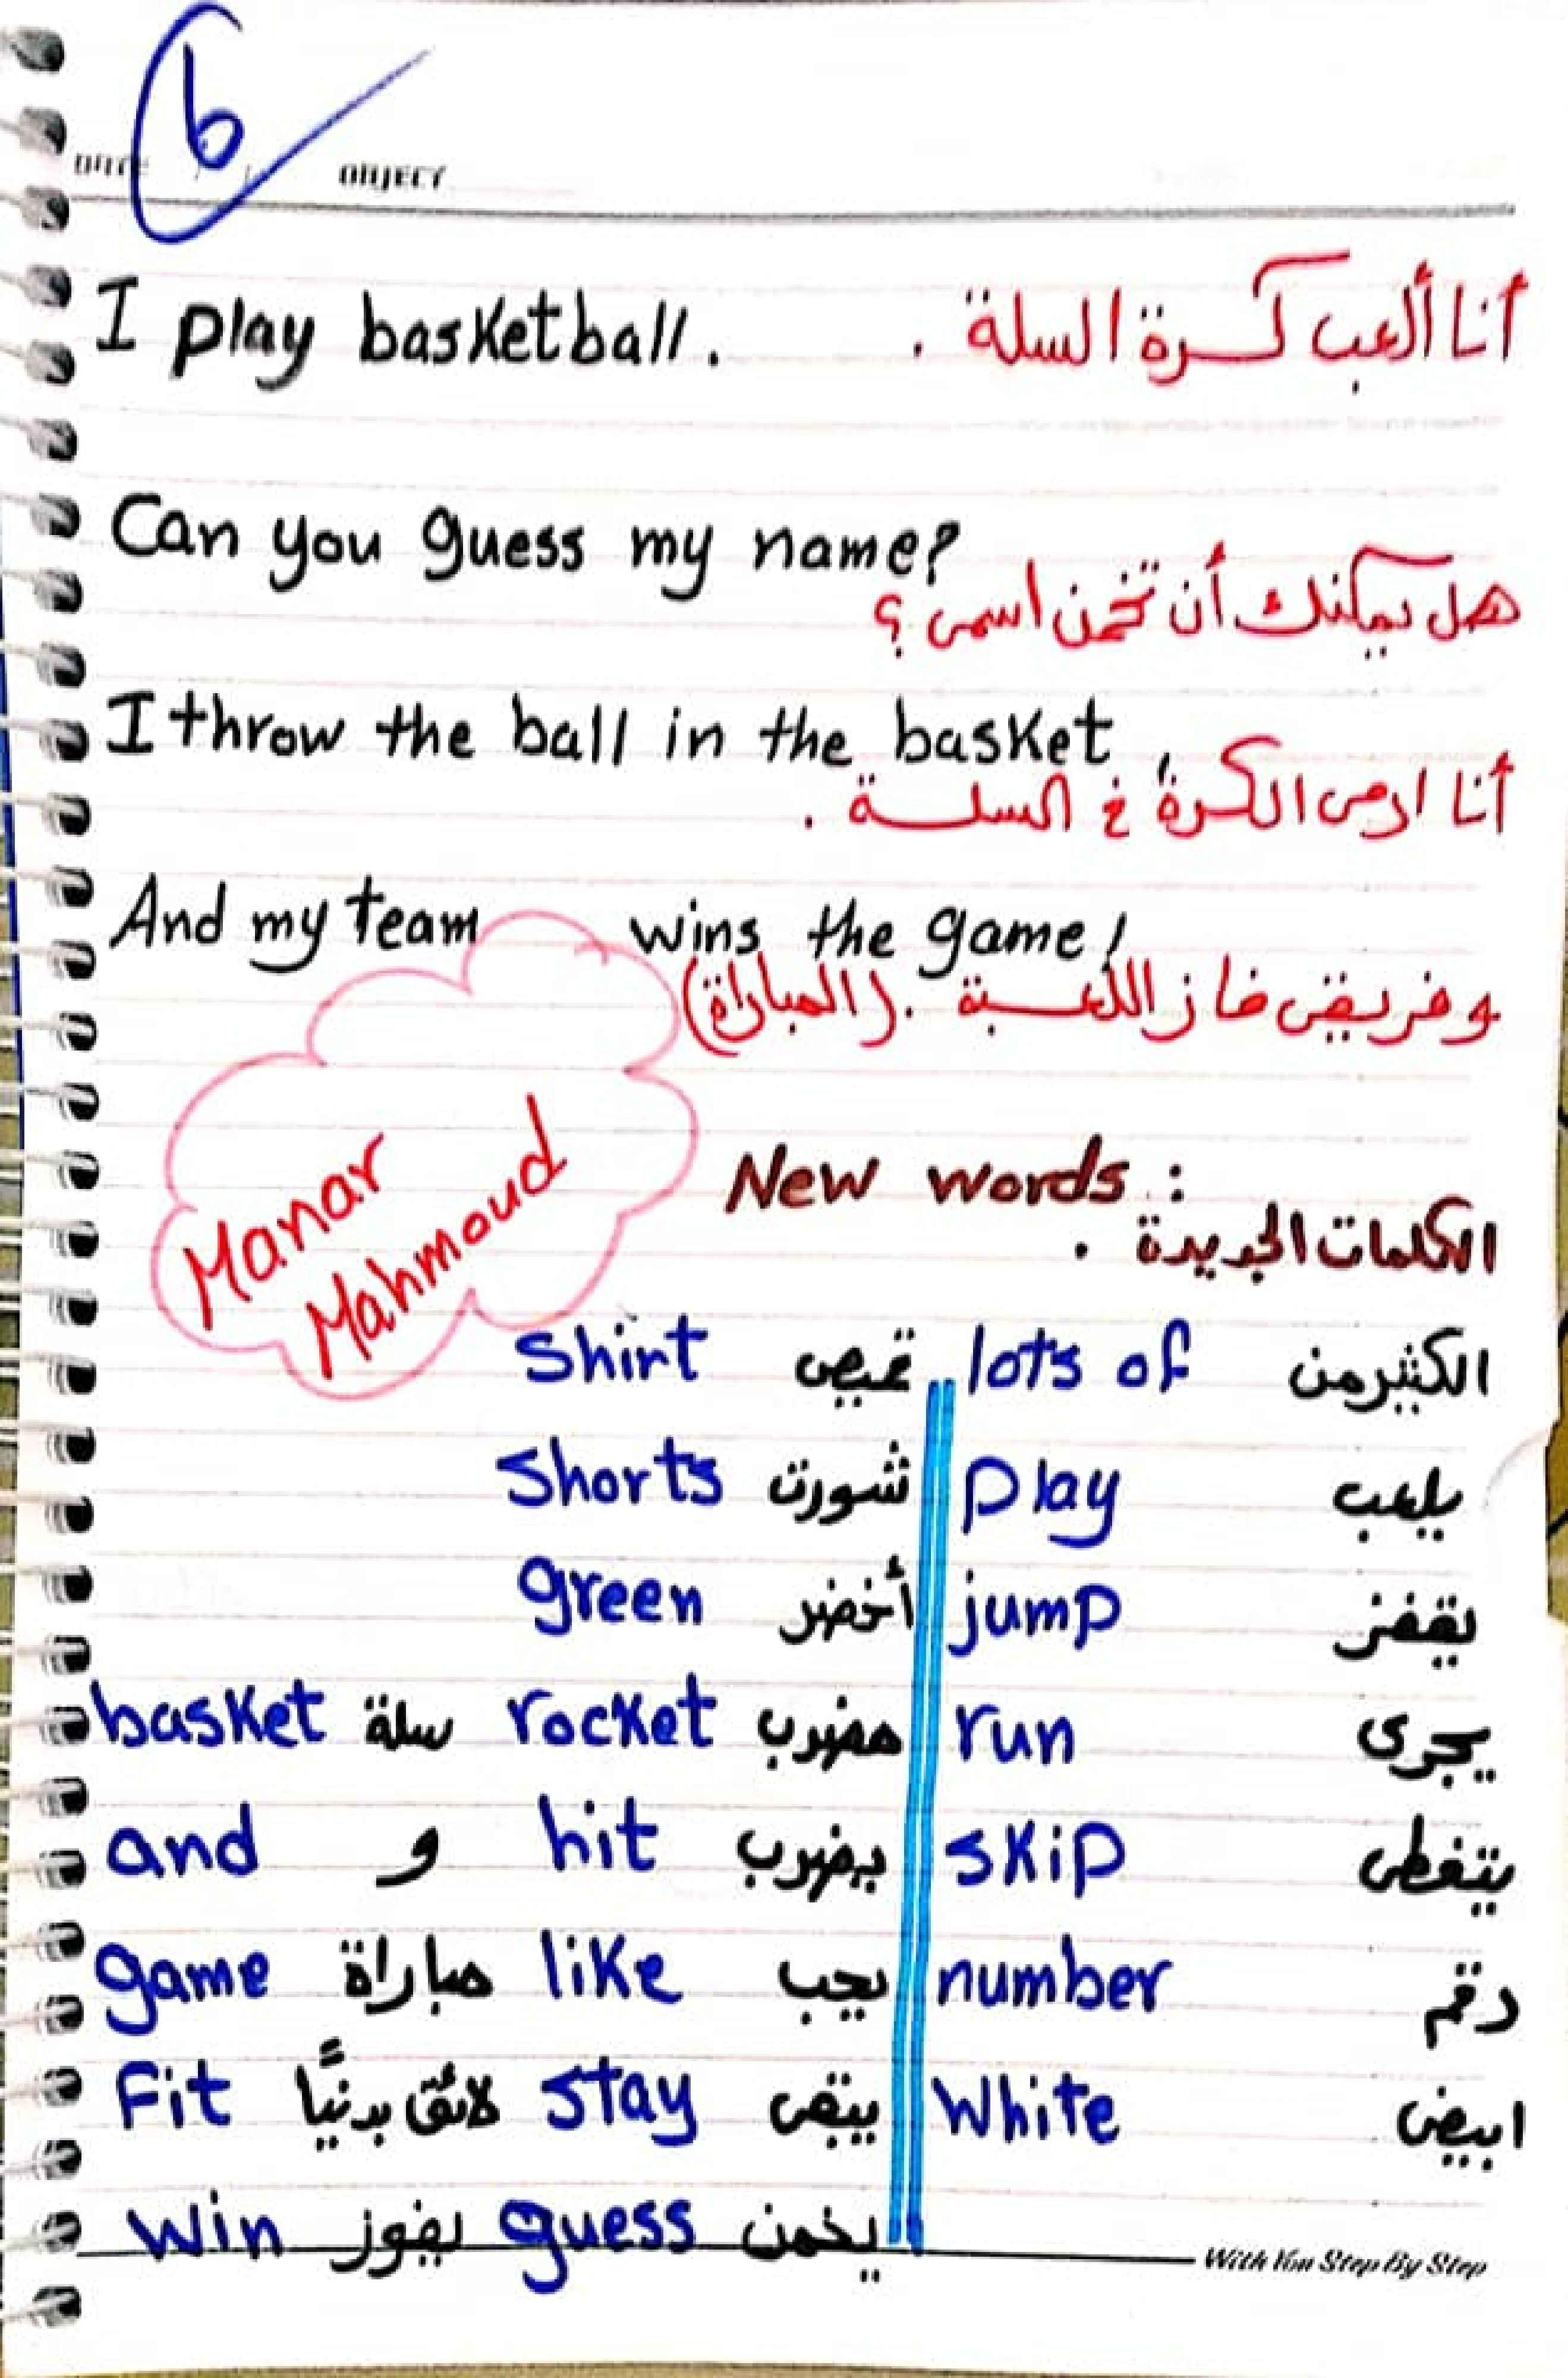 6
DATE / / OBJECT
I play basketball. أنا ألعب كرة السلة .
Can you guess my name?
هل يمكنك أن تخمن اسمى ؟
I throw the ball in the basket,
أنا ارمى الكرة فى السلة .
And my team wins the game!
وفريقى فاز اللعبة . (المباراة)
Manar
Mahmoud
New words :
الكلمات الجديدة .
Shirt قميص lots of الكثير من
Shorts شورت play يلعب
green أخضر jump يقفز
basket سلة rocket مضرب run يجرى
and و hit يضرب skip يتخطى
game مباراة like يحب number رقم
Fit لائق بدنيًا stay يبقى White ابيض
win يفوز guess يخمن
With You Step By Step